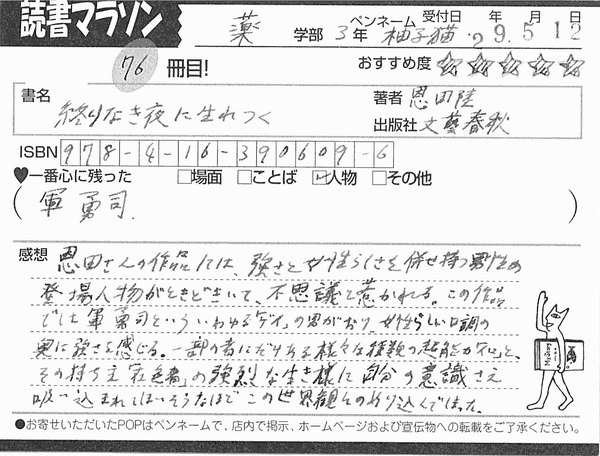 読書マラソン
薬 学部 3年 ペンネーム 柚子猫 受付日 29年5月12日
76冊目! おすすめ度 ☆☆☆☆☆
書名 終りなき夜に生れつく
著者 恩田陸
出版社 文藝春秋
ISBN 978-4-16-390609-6
♥一番心に残った □場面 □ことば ☑人物 □その他
(軍 勇司.)
感想 恩田さんの作品には、強さと女性らしさを併せ持つ男性の
登場人物がときどきいて、不思議と惹かれる。この作品
では軍勇司といういわゆる「ゲイ」の男がおり、女性らしい口調の
奥に強さを感じる。一部の者にだけある様々な種類の超能力「イロ」と、
その持ち主「在色者」の強烈な生き様に自分の意識さえ
吸い込まれてしまいそうなほどこの世界観にのめり込んでしまった。
●お寄せいただいたPOPはペンネームで、店内で掲示、ホームページおよび宣伝物への転載をご了承ください。